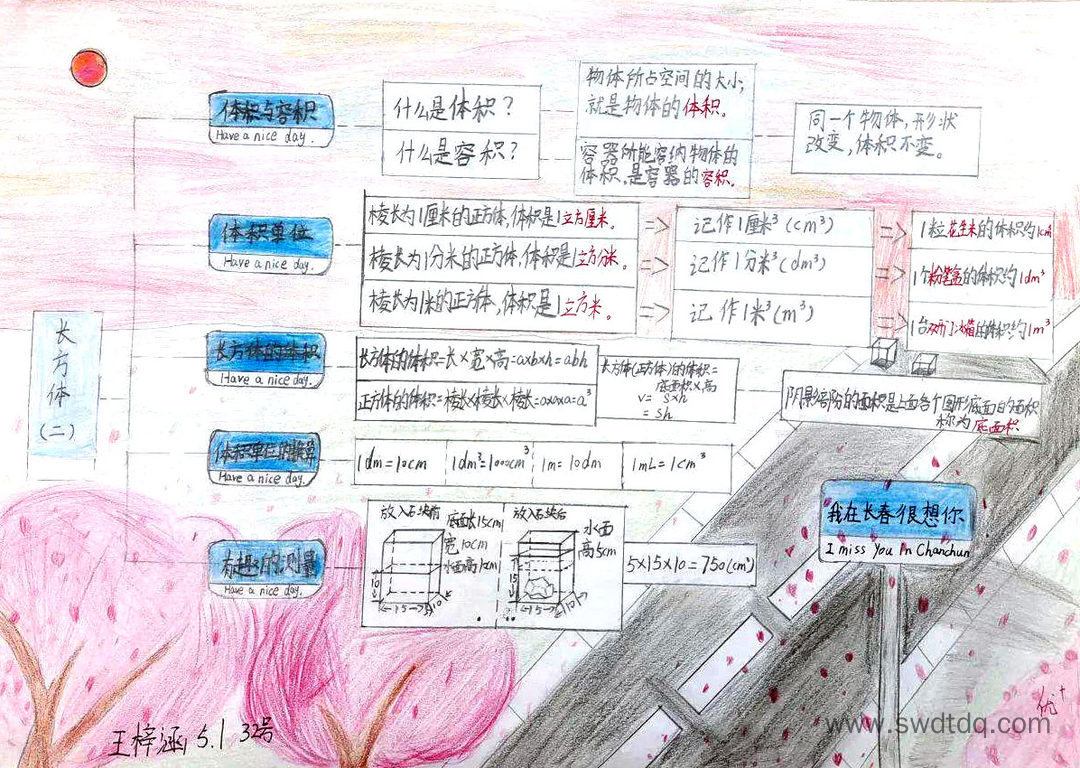 体积与容积
Have a nice day.
什么是体积？
什么是容积？
物体所占空间的大小，
就是物体的体积。
容器所能容纳物体的
体积，是容器的容积。
同一个物体，形状
改变，体积不变。
体积单位
Have a nice day.
棱长为1厘米的正方体，体积是1立方厘米。
棱长为1分米的正方体，体积是1立方分米。
棱长为1米的正方体，体积是1立方米。
记作1厘米³（cm³）
记作1分米³（dm³）
记作1米³（m³）
1粒花生米的体积约1cm³
1个粉笔盒的体积约1dm³
1台双开门冰箱的体积约1m³
长方体（二）
长方体的体积
Have a nice day.
长方体的体积=长×宽×高=a×b×h=abh
正方体的体积=棱长×棱长×棱长=a×a×a=a³
长方体（正方体）的体积=
底面积×高
V= S×h
= Sh
阴影部分的面积是上面各个图形底面的面积
称为底面积
体积单位的换算
Have a nice day.
1dm=10cm
1dm³=1000cm³
1m=10dm
1mL=1cm³
有趣的测量
Have a nice day.
放入石块前
底面长15cm
宽10cm
10
15
10
放入石块后
水面
高5cm
15
15
10
5×15×10=750(cm³)
我在长春很想你
I miss You In Chanchun
王梓涵 5.1 32号
优+
www.swdtdq.com